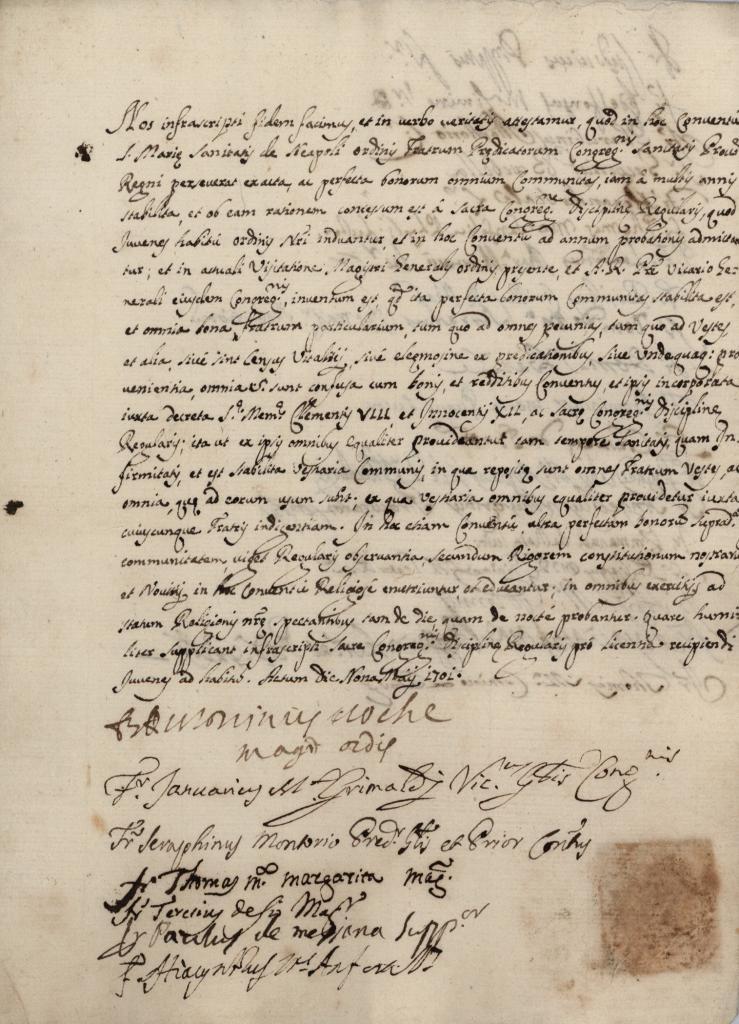 Nos infrascripti fidem facimus, et in verbo veritatis attestamur, quod in hoc Conventu
S. Marię Sanitatis de Neapoli ordinis Fratrum Prędicatorum Congreg.nis Sanitatis Provę
Regni perseverat exacta, ac perfecta bonorum omnium Communitas, iam à multis annis
stabilita, et ob eam rationem concessum est à Sacra Congreg.ne Disciplinę Regularis, quod
Juvenes habitu ordinis Nri induantur, et in hoc Conventu ad annum probationis admictan
tur; et in actuali Visitatione, Magistri Generalis ordinis pręsente, et A. R. Pre Vicario Ge-
nerali eiusdem Congreg.nis, inventum est, qd ita perfecta bonorum Communitas stabilita est,
et omnia bona Fratrum particularium, tum quo ad omnes pecunias, tum quo ad Vestes
et alia, sivè sint Census Vitalitij, sivè eleęmosine ex prędicationibus, sive undequaq: pro
venientia, omnia sunt confusa cum bonis, et redditibus Conventus, et ipsi incorporata
iuxta decreta S. Mem. Clementis VIII et Innocentij XII, ac Sacrę Congreg.nis Disciplinę
Regularis; ita ut ex ipsis omnibus equaliter provideantur tam tempore Sanitatis, quam In
firmitatis, et est stabilita Vestiaria Communis, in qua repositę sunt omnes Fratrum Vestes, ac
omnia, quę ad eorum usum sunt; ex qua Vestiaria omnibus equaliter providetur iuxta
cuiuscunque Fratris indigentiam. In hoc etiam Conventu, ultra perfectam bonoru suprad.
communitatem viget Regularis observantia, secundum Rigorem constitutionum nostraru
et Novitij in hoc Conventu Religiosè enutriuntur et educantur; in omnibus exercitijs ad
statum Religionis nrę spectantibus tam de die quam de nocte probantur. Quare humi-
liter supplicant infrascripti Sacrę Congreg.nis Disciplinę Regularis pro licentia recipiendi
Juvenes ad habitu. Actum Die Nona Maij 1701.
Fr Antoninus Cloche
magr ordis
Fr. Januarius Ma Grimaldj Vic. Glis Cong.nis
Fr Seraphinus Montorio Pred. Glis et Prior Contus
fr Thomas m. margarita mag.
fr Paulus de messana supp.or